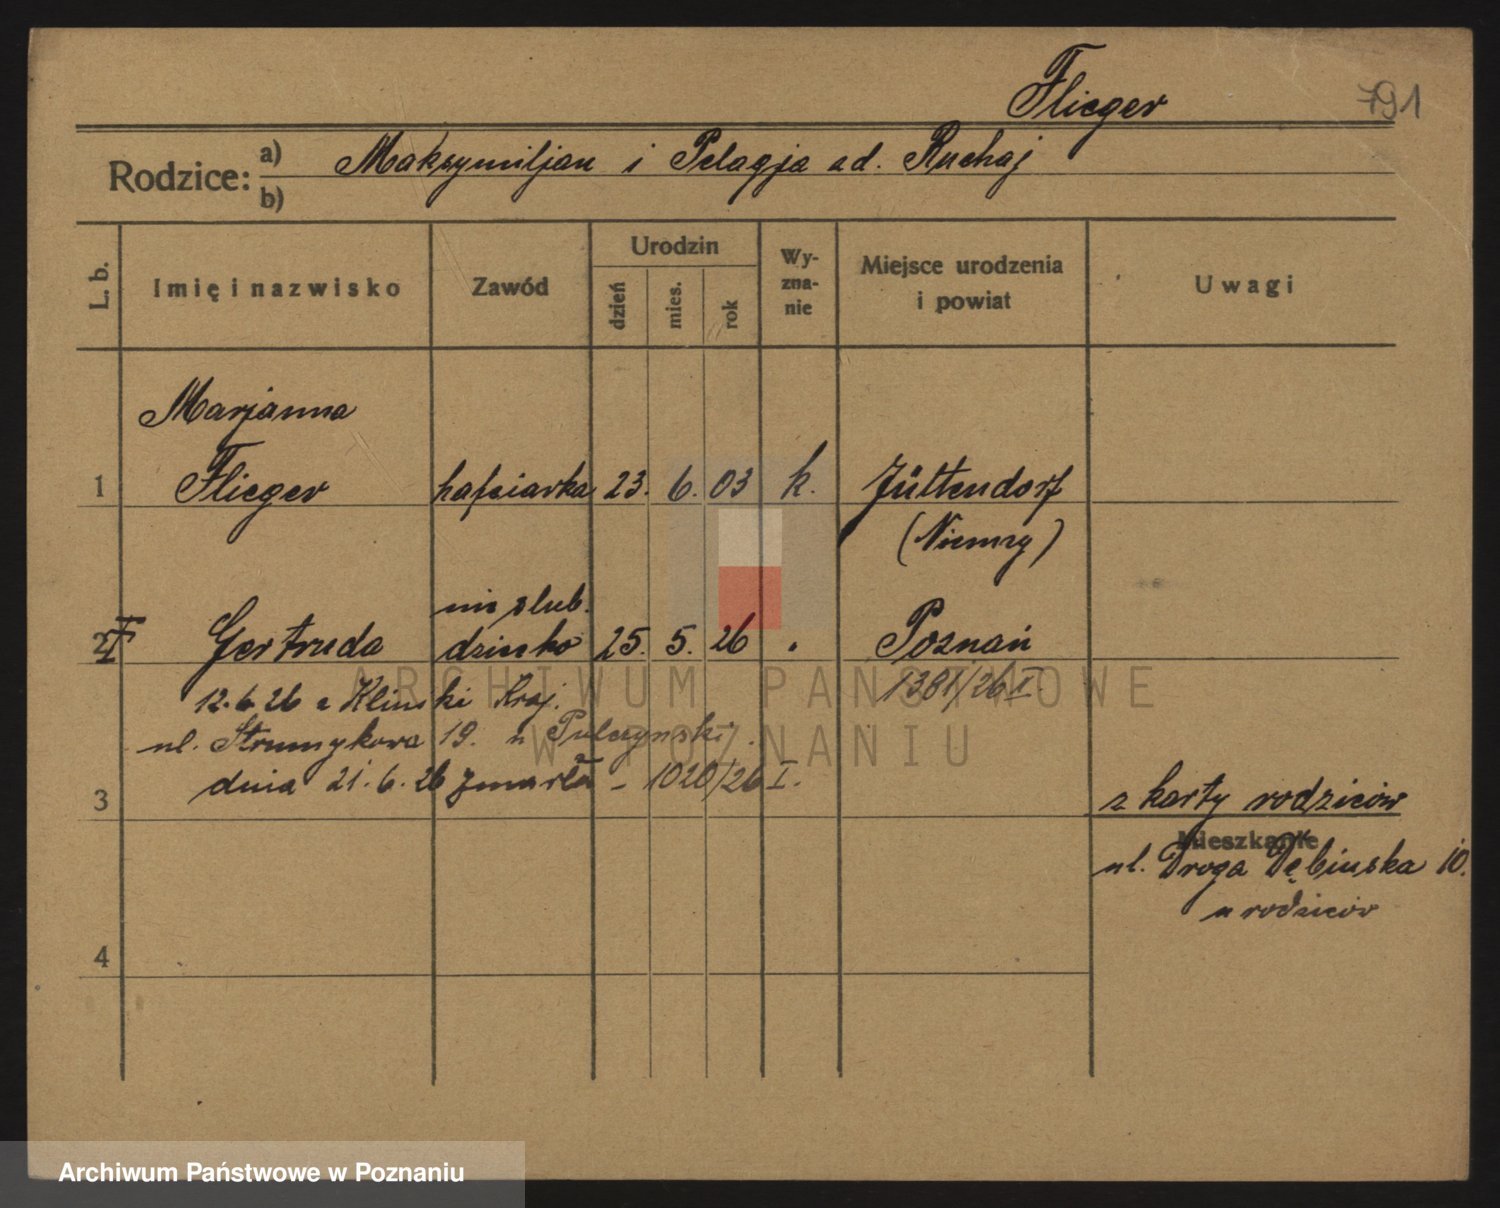 Flieger 791
Rodzice: a) b) Maksymiljan i Pelagja z d. Ruchaj
L. b. Imię i nazwisko Zawód Urodzin dzień mies. rok Wyznanie Miejsce urodzenia i powiat Uwagi
Marjanna
1 Flieger hafciarka 23. 6. 03 k. Jüttendorf
(Niemcy)
nieślub.
2 Gertruda dziecko 25. 5. 26 " Poznań
ARCHIWUM PAŃSTWOWE
12.6.26 z Kliniki Kraj. 1381/26 I
W POZNANIU
ul. Strumykowa 19. u Pulczynski.
dnia 21.6.26 zmarła – 1020/26 I.
3 z karty rodziców
Mieszkanie
ul. Droga Dębińska 10.
u rodziców
4
Archiwum Państwowe w Poznaniu